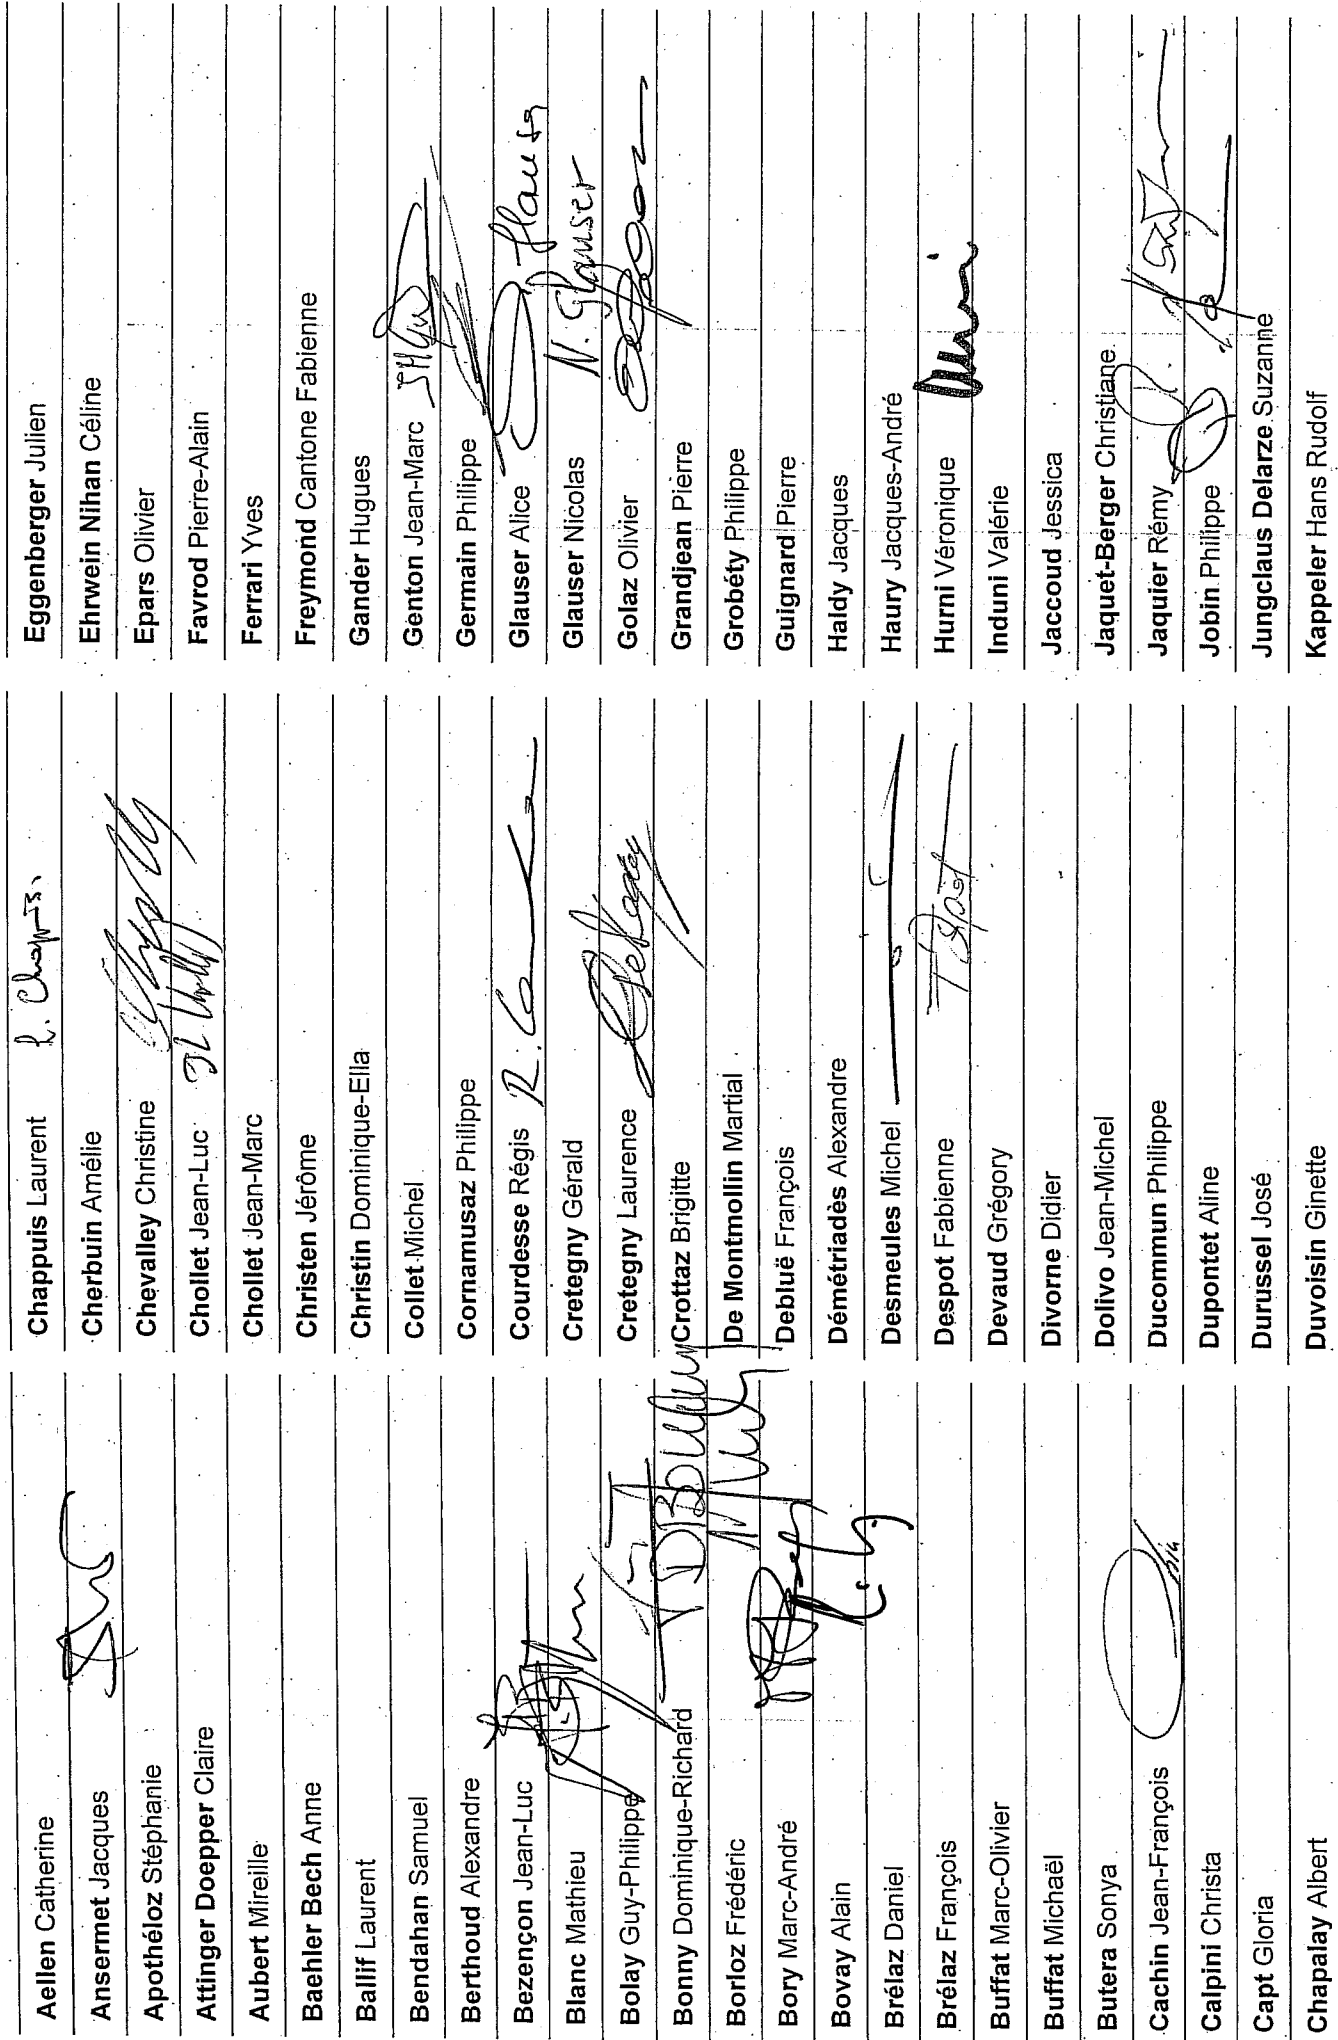 Aellen Catherine
Ansermet Jacques
Apothéloz Stéphanie
Attinger Doepper Claire
Aubert Mireille
Baehler Bech Anne
Ballif Laurent
Bendahan Samuel
Berthoud Alexandre
Bezençon Jean-Luc
Blanc Mathieu
Bolay Guy-Philippe
Bonny Dominique-Richard
Borloz Frédéric
Bory Marc-André
Bovay Alain
Brélaz Daniel
Brélaz François
Buffat Marc-Olivier
Buffat Michaël
Butera Sonya
Cachin Jean-François
Calpini Christa
Capt Gloria
Chapalay Albert
Chappuis Laurent L. Chappuis
Cherbuin Amélie
Chevalley Christine
Chollet Jean-Luc
Chollet Jean-Marc
Christen Jérôme
Christin Dominique-Ella
Collet Michel
Cornamusaz Philippe
Courdesse Régis
Cretegny Gérald
Cretegny Laurence
Crottaz Brigitte
De Montmollin Martial
Debluë François
Démétriadès Alexandre
Desmeules Michel
Despot Fabienne
Devaud Grégory
Divorne Didier
Dolivo Jean-Michel
Ducommun Philippe
Dupontet Aline
Durussel José
Duvoisin Ginette
Eggenberger Julien
Ehrwein Nihan Céline
Epars Olivier
Favrod Pierre-Alain
Ferrari Yves
Freymond Cantone Fabienne
Gander Hugues
Genton Jean-Marc
Germain Philippe
Glauser Alice
Glauser Nicolas N. Glauser
Golaz Olivier
Grandjean Pierre
Grobéty Philippe
Guignard Pierre
Haldy Jacques
Haury Jacques-André
Hurni Véronique
Induni Valérie
Jaccoud Jessica
Jaquet-Berger Christiane
Jaquier Rémy
Jobin Philippe
Jungclaus Delarze Suzanne
Kappeler Hans Rudolf